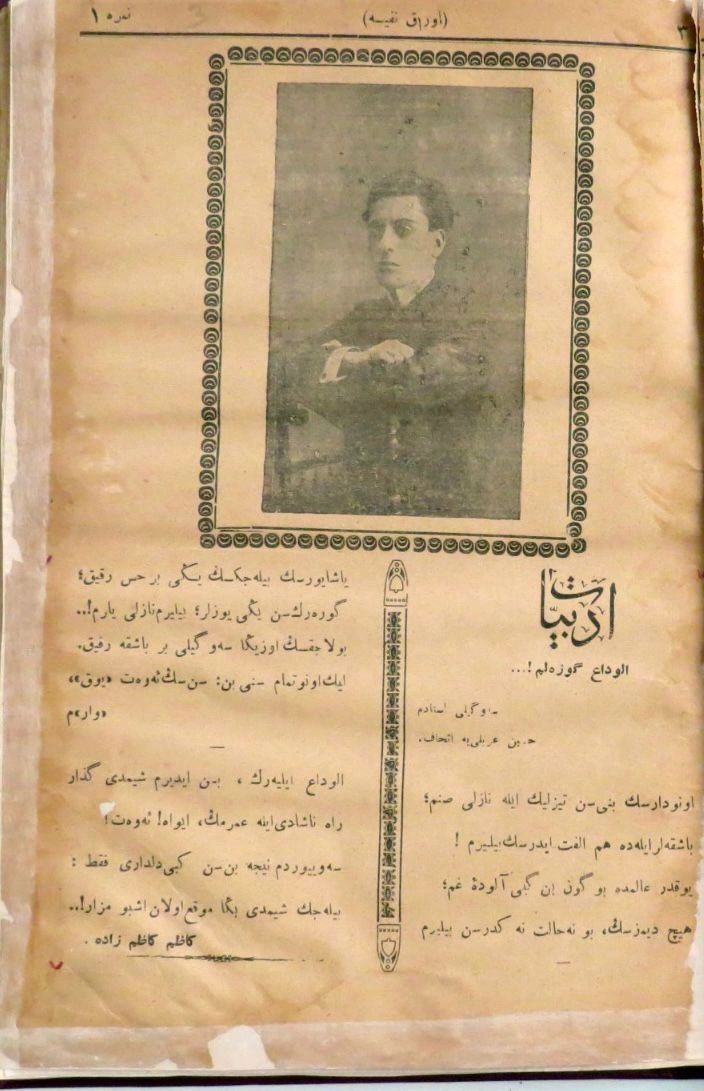 ٣
(اوراق نفیسه)
نمره ١
ادبیات
الوداع گوزەلم!...
سوگیلی استادم
حسین عربلی‌یه اتحاف.
اونودارسك بنی سن تیزلیك ایله نازلی صنم؛
باشقه‌لر ایله‌ده هم الفت ایدرسك بیلیرم !
یوقدر عالمده بو گون بن گبی آلودهٔ غم؛
هیچ دیمزسڭ، بو نه‌حالت نه كدرسن بیلیرم
یاشایورسك بیله‌جكسڭ یڭی بر حس رقیق؛
گوره‌رك‌سن یڭی یوزلر؛ بیلیرم نازلی یارم!..
بولاجقسڭ اوزیڭا سه‌وگیلی بر باشقه رفیق.
لیك اونوتمام سنی بن: سن سڭ ئه‌وت «یوق»،
«وار»م
الوداع ایلیه‌رك ، بن ایدیرم شیمدی گذار
راه ناشادی‌اینه عمرمڭ، ایواه! ئه‌وت!
سه‌وییوردم نیجه بن‌سن كبی‌دلداری فقط :
بیله‌جك شیمدی بڭا موقع‌اولان اشبو مزار!..
كاظم كاظم زاده .